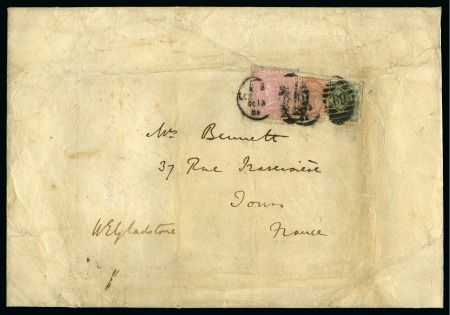 Mrs Bennett
37 Rue Traversière
Tours
W E Gladstone France